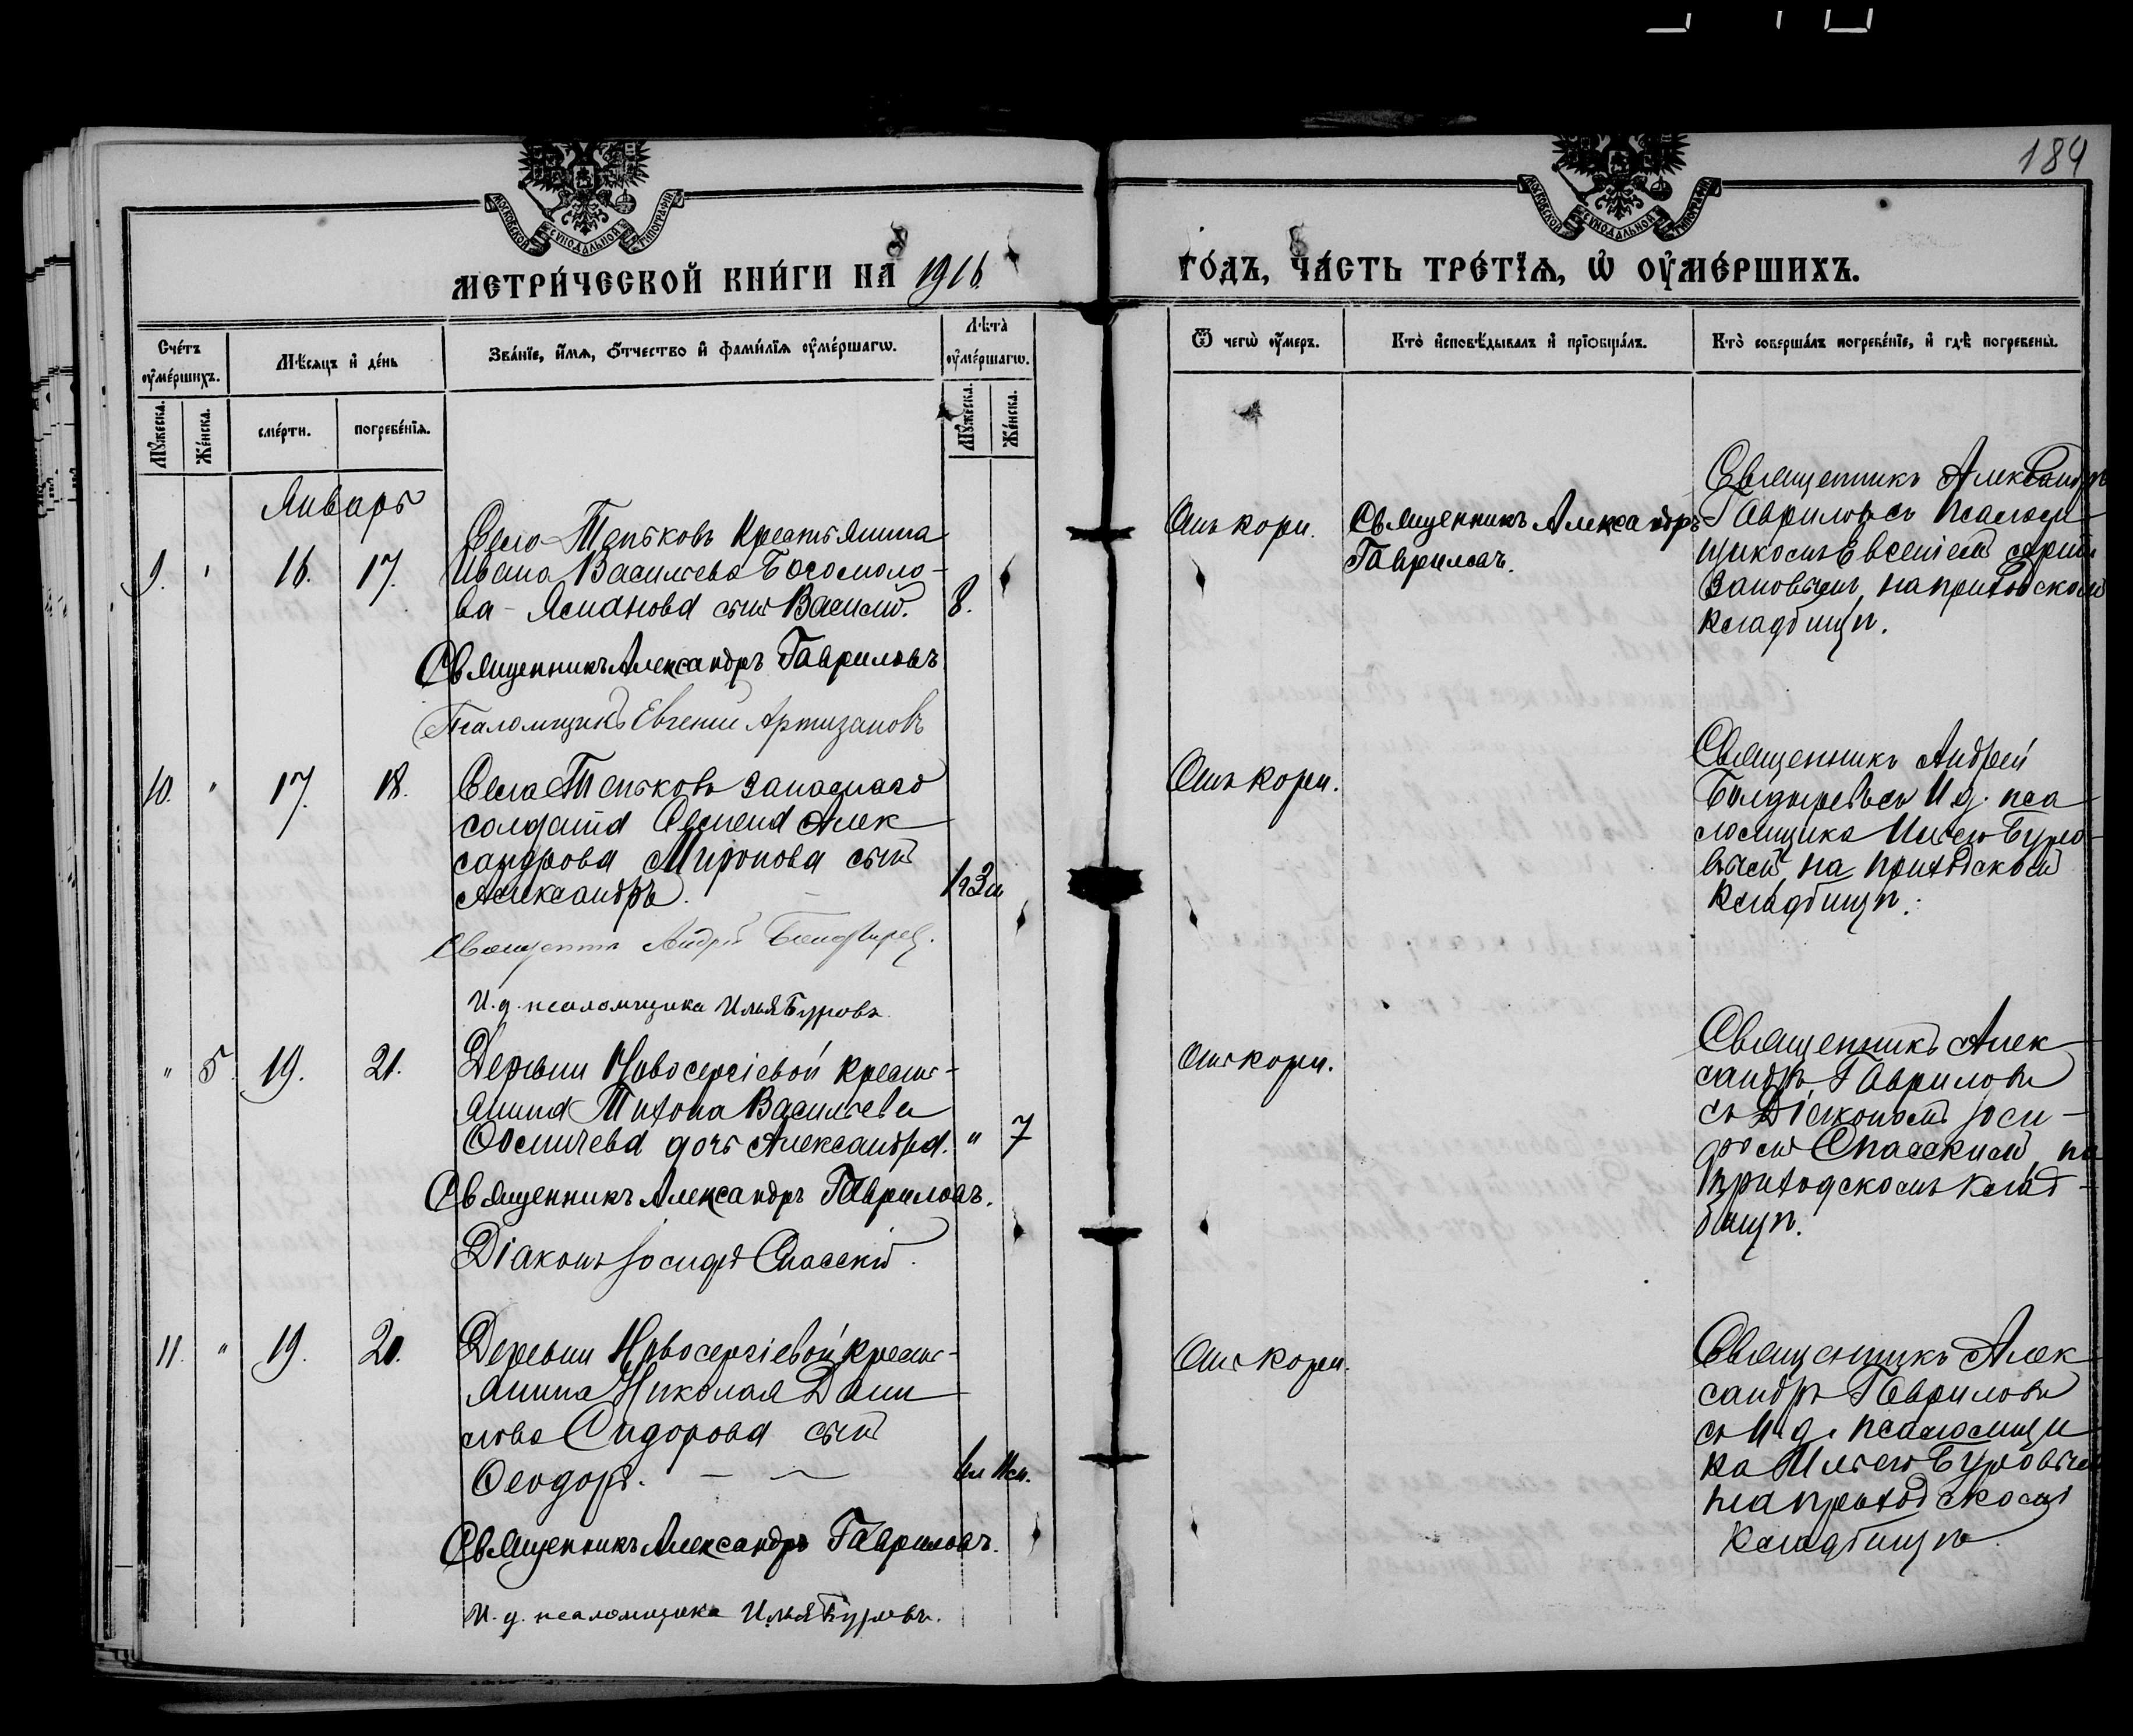 184
МОСКОВСКОЙ СѴНОДАЛЬНОЙ ТИПОГРАФІИ
МОСКОВСКОЙ СѴНОДАЛЬНОЙ ТИПОГРАФІИ
МЕТРИ́ЧЕСКОЙ КНИ́ГИ НА 1916
ГО́ДЪ, ЧА́СТЬ ТРЕ́ТІѦ, Ѡ҆ ОУ҆МЕ́РШИХЪ.
Сче́тъ оу҆ме́ршихъ.
Мѣ́сяцъ и҆ де́нь
Зва́нїе, и҆́мя, ѻ҆́тчество и҆ фами́лїя оу҆ме́ршагѡ.
Лѣ́та оу҆ме́ршагѡ.
Ѿ чегѡ̀ оу҆́меръ.
Кто̀ и҆сповѣ́дывалъ и҆ прїѻбща́лъ.
Кто̀ соверша́лъ погребе́нїе, и҆ гдѣ̀ погребены̀.
Мꙋ́жеска.
Же́нска.
сме́рти.
погребе́нїя.
Мꙋ́жеска.
Же́нска.
Январь
9. " 16. 17.
Село Тепьковъ Крестьянина
Ивана Васильева Богомоло-
ва - Асманова сынъ Василій. 8.
Священникъ Александръ Гавриловъ
Псаломщикъ Евгеній Артизановъ
Отъ кори.
Священникъ Александръ
Гавриловъ.
Священникъ Александръ
Гавриловъ съ псалом-
щикомъ Евгеніемъ
на приходскомъ
кладбищѣ.
10. " 17. 18.
Села Тепьковъ запаснаго
солдата Семена Алек
сандрова Миронова сынъ
Александръ.
Священникъ Андрей
И. д. псаломщика Илья Буровъ
Отъ кори.
Священникъ Андрей
Болдыревъ съ И. д. пса
ломщика Ильею Буро-
вымъ, на приходскомъ
кладбищѣ.
" 5. 19. 21.
Деревни Новосергіевой крестъ-
янина Тихона Васильева
дочь Александра. " 7
Священникъ Александръ Гавриловъ.
Діаконъ Іосифъ Спасскій.
Отъ кори.
Священникъ Алек
сандръ Гавриловъ
съ Діакономъ Іоси-
фомъ Спасскимъ, на
приходскомъ клад-
бищѣ.
11. " 19. 20.
Деревни Новосергіевой крестъ-
янина Николая Дани
лова Сидорова сынъ
Ѳеодоръ.
Священникъ Александръ Гавриловъ.
И. д. псаломщика Илья Буровъ.
Отъ кори.
Священникъ Алек
сандръ Гавриловъ
съ И. д. псаломщи
ка Ильею Буровымъ
на приходскомъ
кладбищѣ